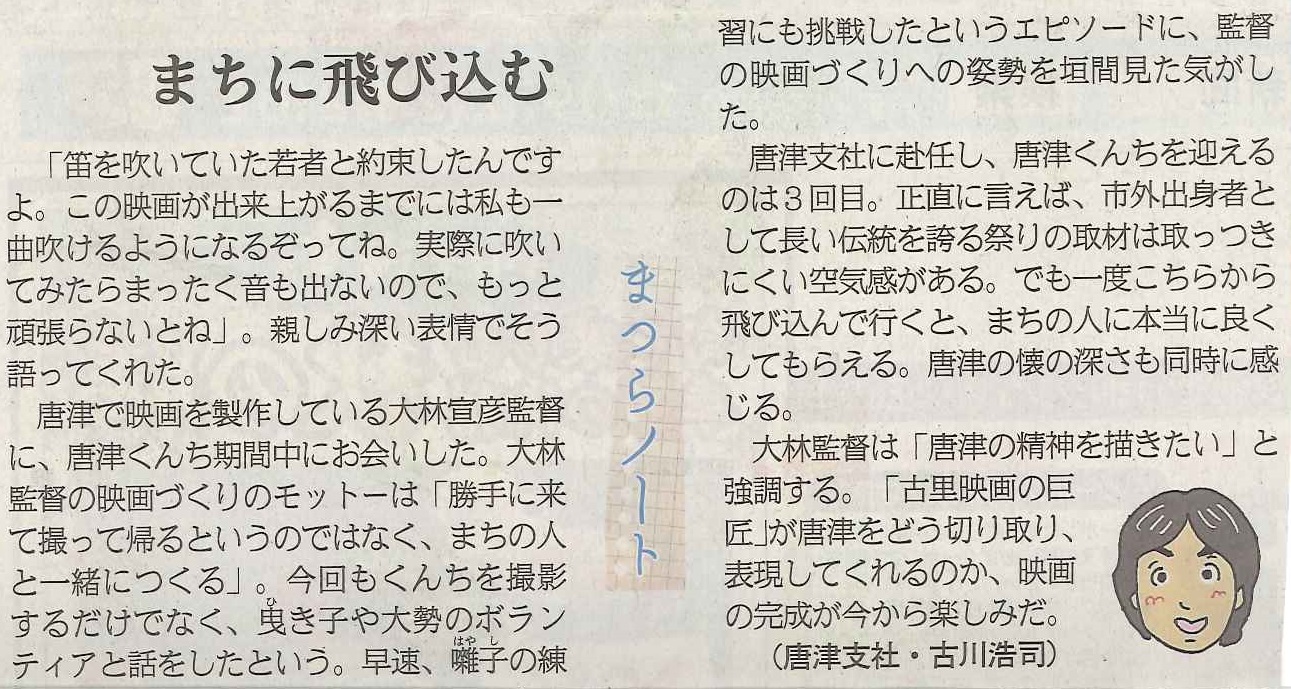 まちに飛び込む
「笛を吹いていた若者と約束したんです
よ。この映画が出来上がるまでには私も一
曲吹けるようになるぞってね。実際に吹い
てみたらまったく音も出ないので、もっと
頑張らないとね」。親しみ深い表情でそう
語ってくれた。
唐津で映画を製作している大林宣彦監督
に、唐津くんち期間中にお会いした。大林
監督の映画づくりのモットーは「勝手に来
て撮って帰るというのではなく、まちの人
と一緒につくる」。今回もくんちを撮影
ひ
するだけでなく、曳き子や大勢のボラン
はやし
ティアと話をしたという。早速、囃子の練
まつらノート
習にも挑戦したというエピソードに、監督
の映画づくりへの姿勢を垣間見た気がし
た。
唐津支社に赴任し、唐津くんちを迎える
のは3回目。正直に言えば、市外出身者と
して長い伝統を誇る祭りの取材は取っつき
にくい空気感がある。でも一度こちらから
飛び込んで行くと、まちの人に本当に良く
してもらえる。唐津の懐の深さも同時に感
じる。
大林監督は「唐津の精神を描きたい」と
強調する。「古里映画の巨
匠」が唐津をどう切り取り、
表現してくれるのか、映画
の完成が今から楽しみだ。
（唐津支社・古川浩司）